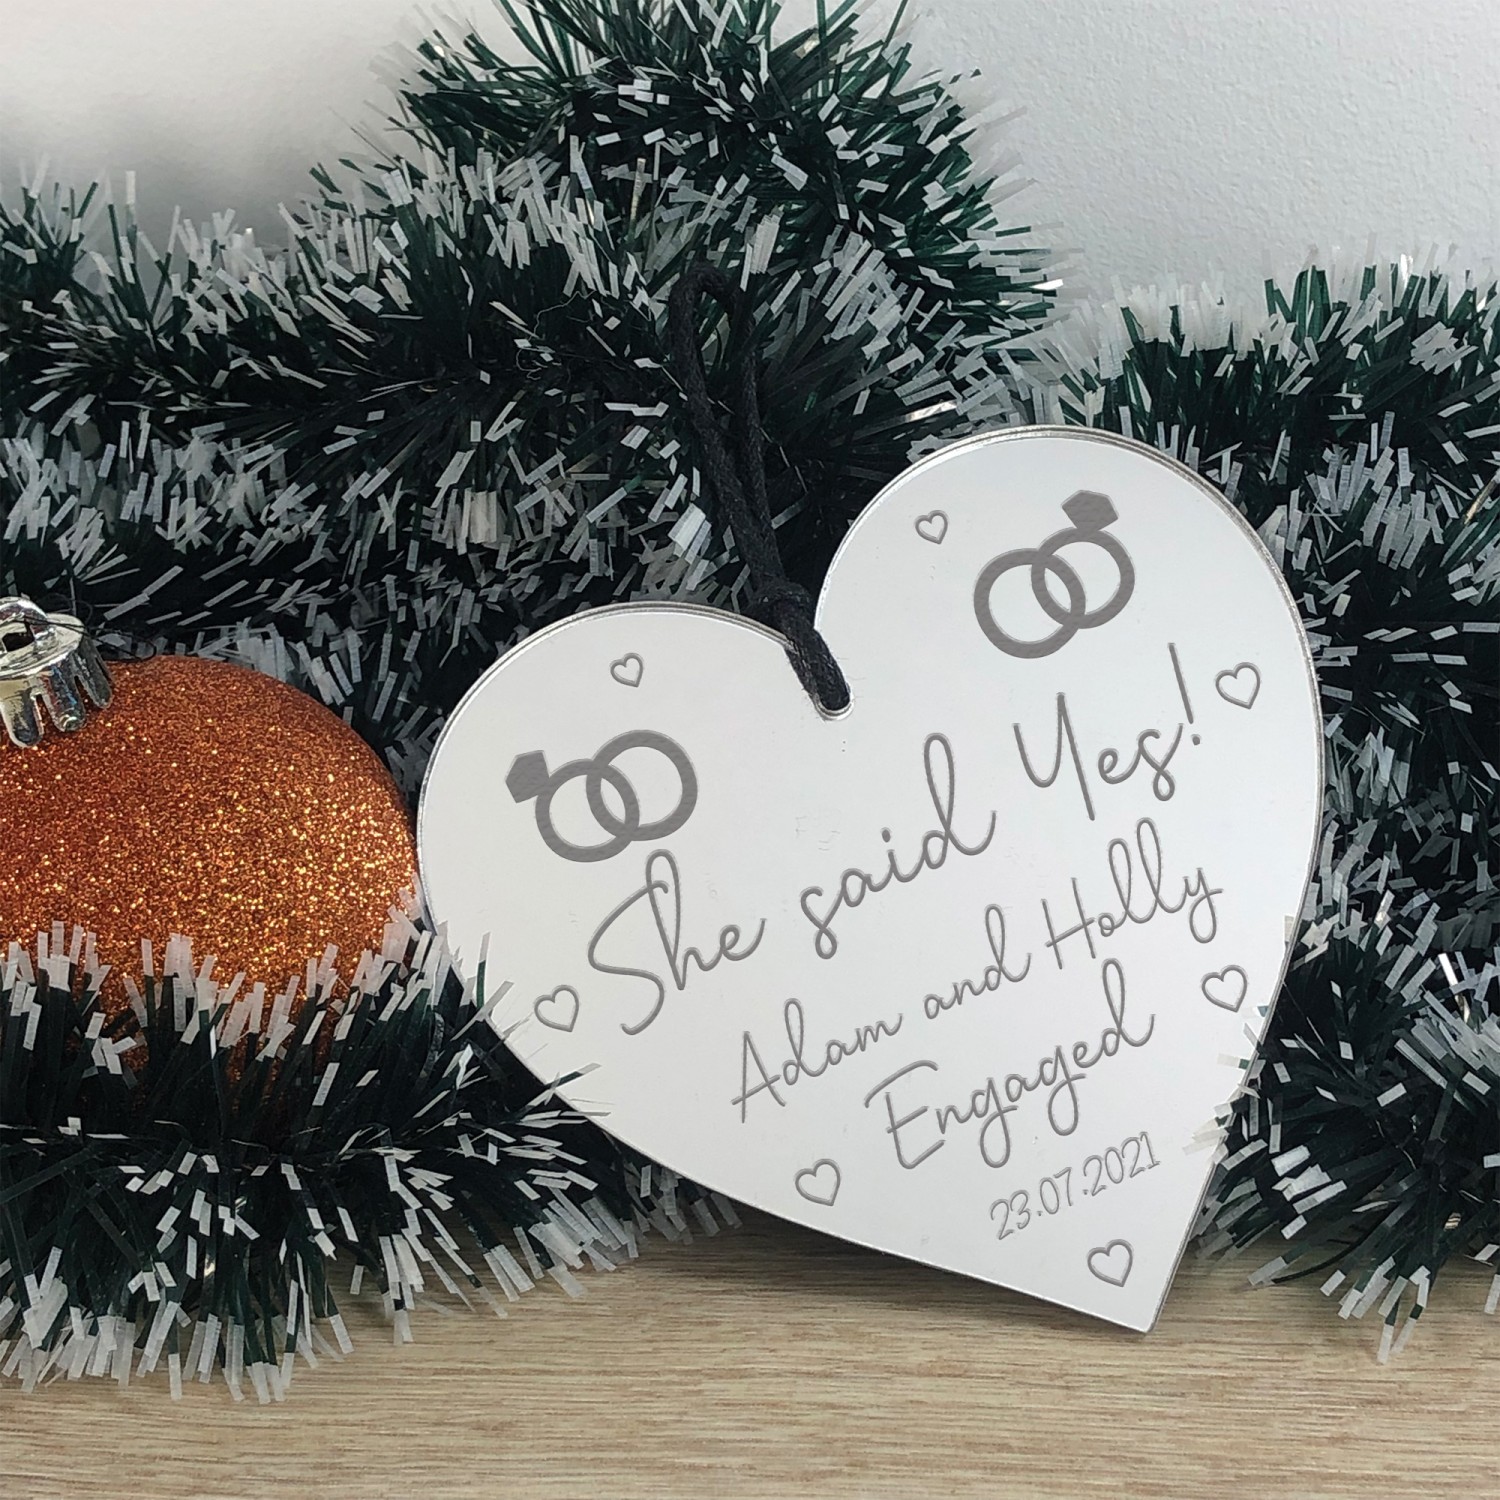 She said Yes!
Adam and Holly
Engaged
23.07.2021